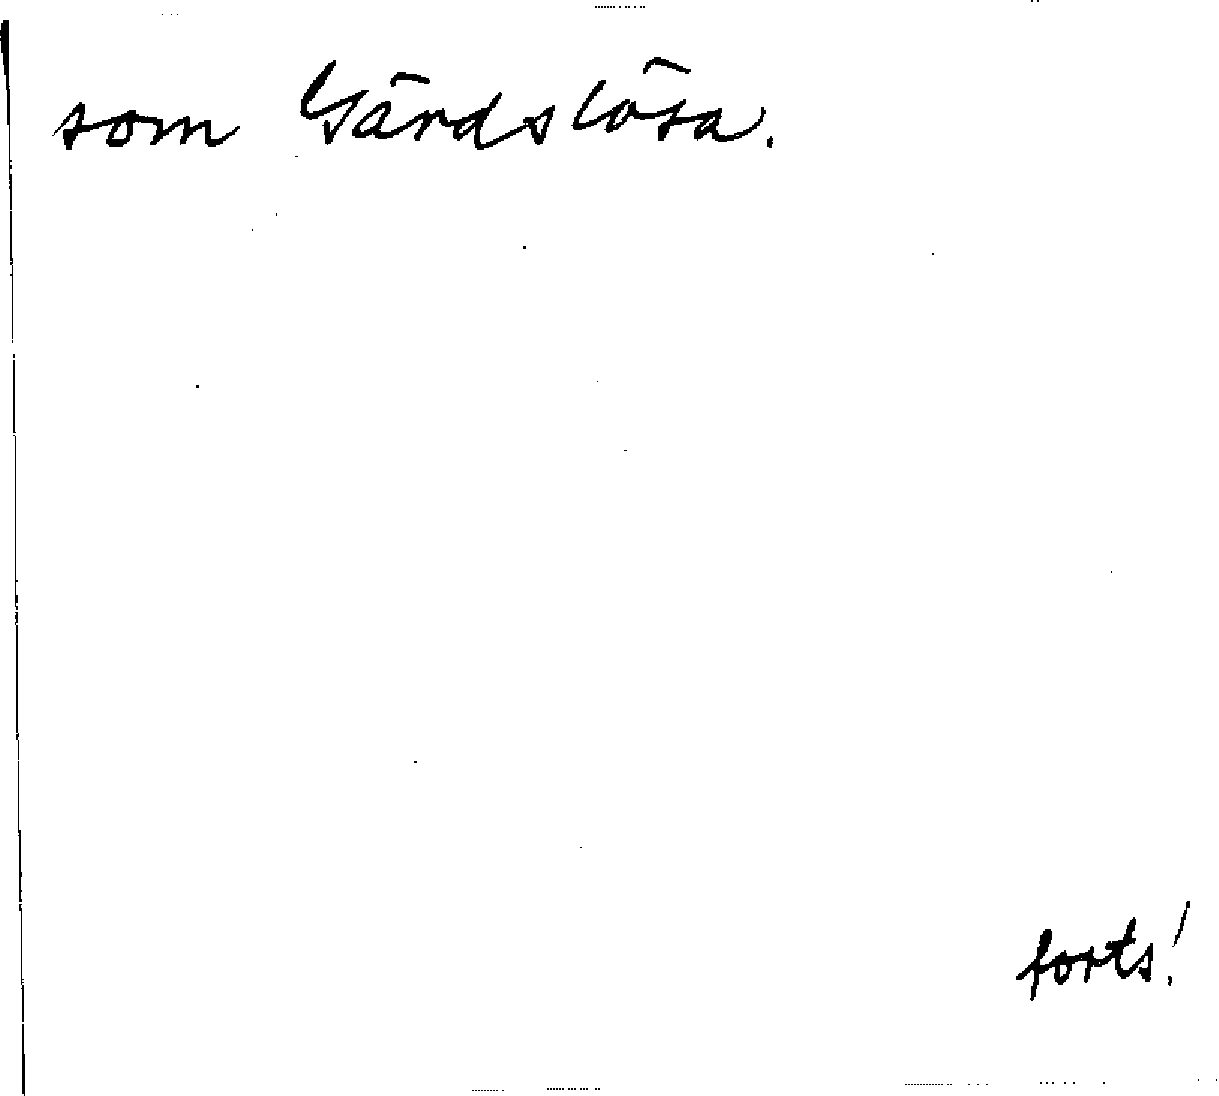 som Gärdslösa.
forts!